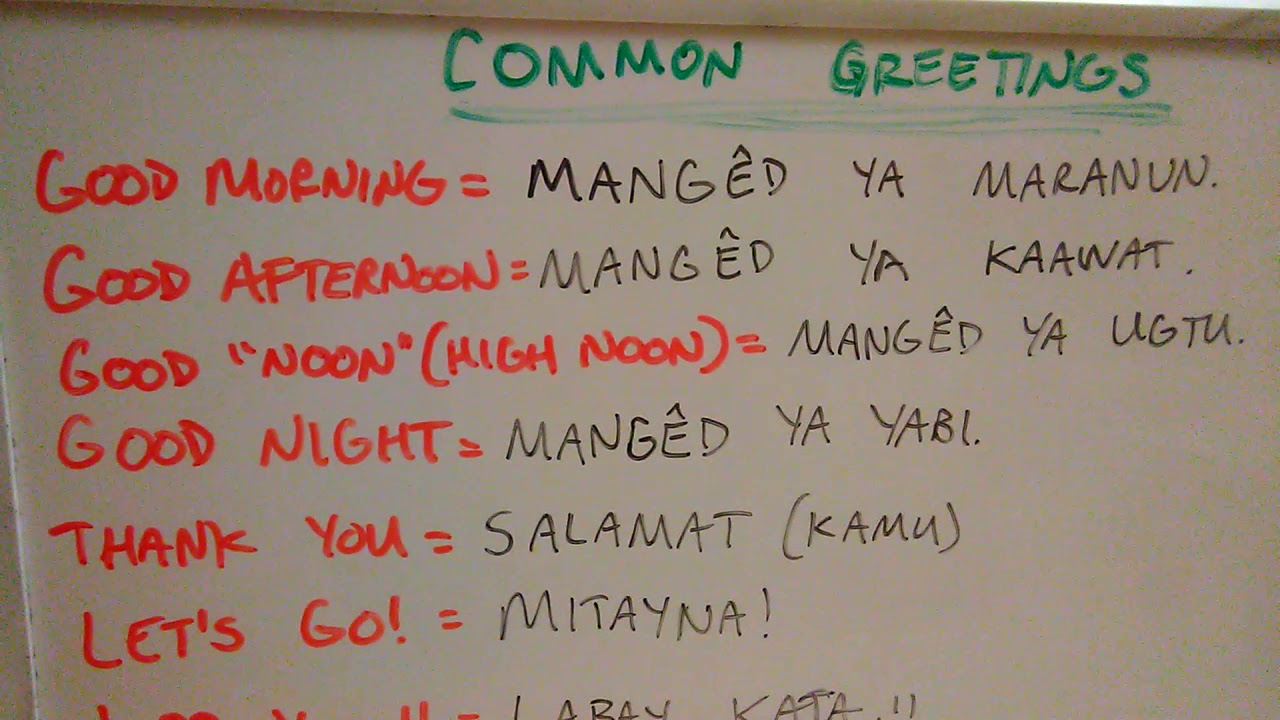 COMMON GREETINGS
GOOD MORNING = MANGÊD YA MARANUN.
GOOD AFTERNOON = MANGÊD YA KAAWAT.
GOOD "NOON" (HIGH NOON) = MANGÊD YA UGTU.
GOOD NIGHT = MANGÊD YA YABI.
THANK YOU = SALAMAT (KAMU)
LET'S GO! = MITAYNA!
= LABAY KATA!!